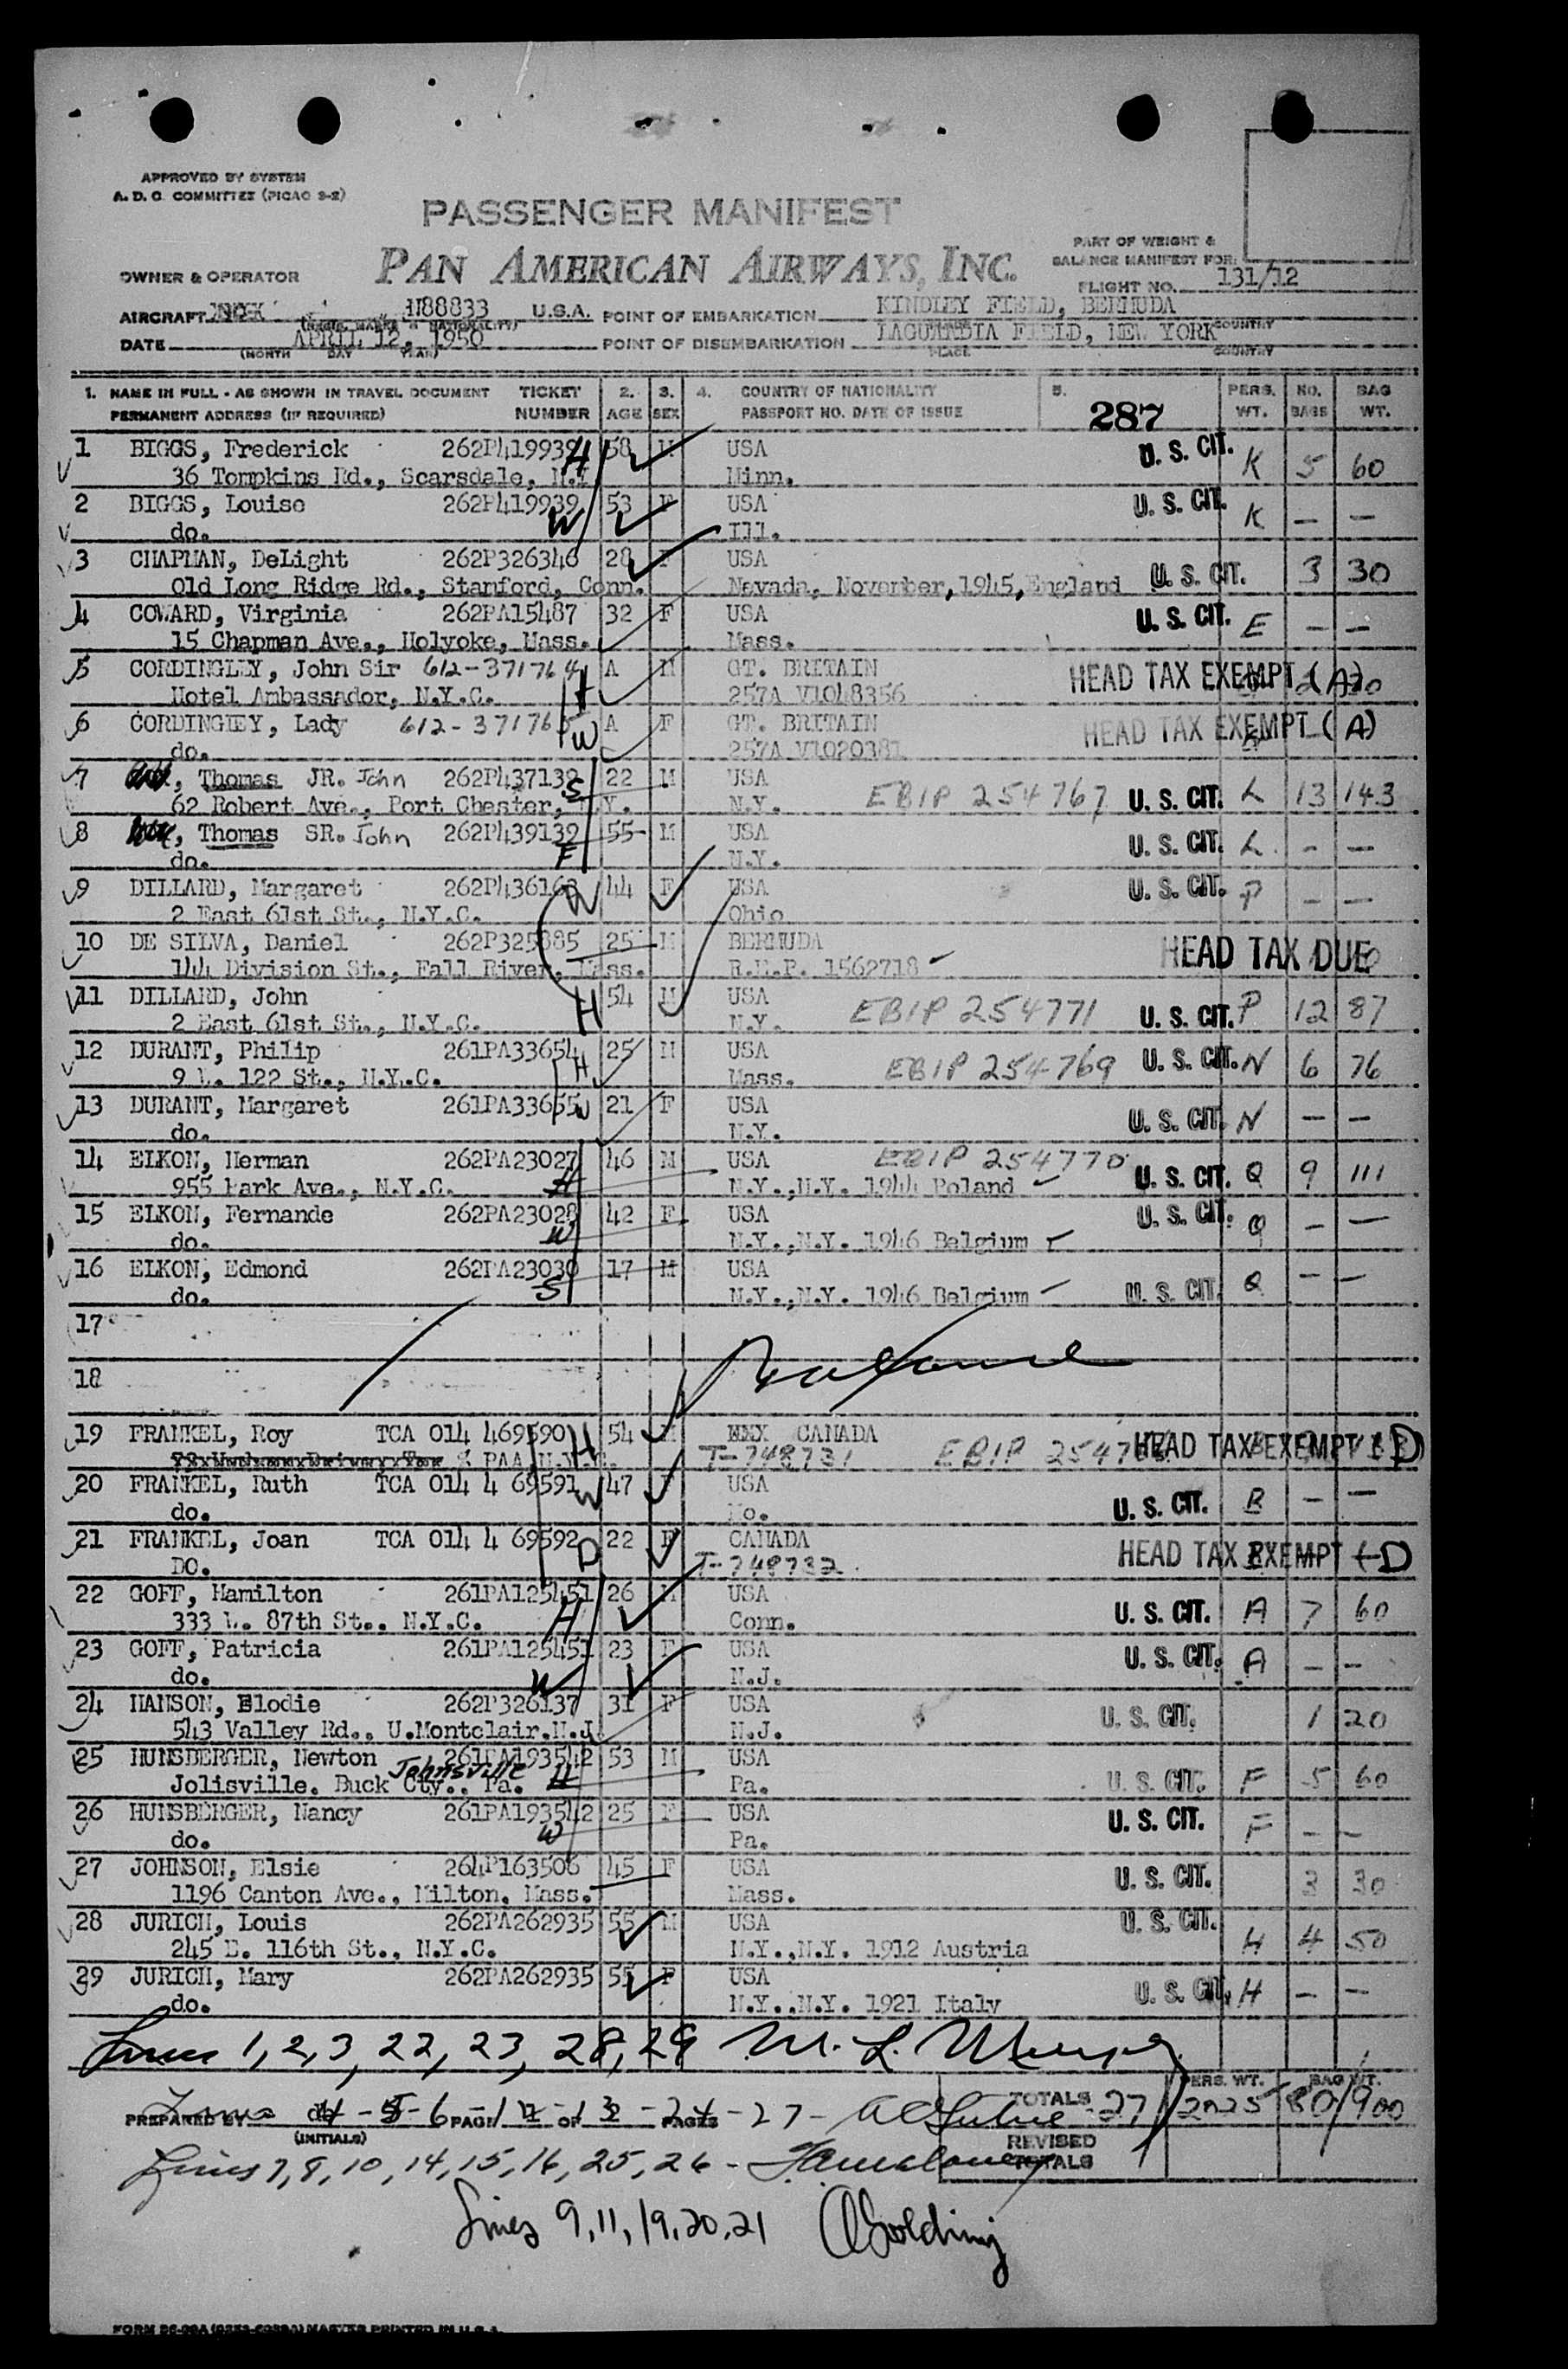 APPROVED BY SYSTEM
A. D. C. COMMITTEE (PICAO 9-2)
PASSENGER MANIFEST
PAN AMERICAN AIRWAYS, INC.
PART OF WEIGHT &
BALANCE MANIFEST FOR:
OWNER & OPERATOR
FLIGHT NO. 131/12
AIRCRAFT N88833 U.S.A. POINT OF EMBARKATION KINDLEY FIELD, BERMUDA
DATE APRIL 12, 1950 POINT OF DISEMBARKATION LAGUARDIA FIELD, NEW YORK COUNTRY
(MONTH DAY YEAR) PLACE COUNTRY
1. NAME IN FULL - AS SHOWN IN TRAVEL DOCUMENT TICKET 2. 3. 4. COUNTRY OF NATIONALITY 5. PERS. NO. BAG
PERMANENT ADDRESS (IF REQUIRED) NUMBER AGE SEX PASSPORT NO. DATE OF ISSUE 287 WT. BAGS WT.
1 BIGGS, Frederick 262P419939 H 58 M USA U. S. CIT. K 5 60
36 Tompkins Rd., Scarsdale, N.Y. Minn.
2 BIGGS, Louise 262P419939 W 53 F USA U. S. CIT. K — —
do. Ill.
3 CHAPMAN, DeLight 262P326346 28 F USA U. S. CIT. 3 30
Old Long Ridge Rd., Stamford, Conn. Nevada, November, 1945, England
4 COWARD, Virginia 262PA15487 32 F USA U. S. CIT. E — —
15 Chapman Ave., Holyoke, Mass. Mass.
5 CORDINGLEY, John Sir 612-371764 A M GT. BRITAIN HEAD TAX EXEMPT (A)
Hotel Ambassador, N.Y.C. H 257A V1048356
6 CORDINGLEY, Lady 612-371765 W A F GT. BRITAIN HEAD TAX EXEMPT (A)
do. 257A V1020381
7 , Thomas JR. John 262P437139 S 22 M USA EBIP 254767 U. S. CIT. L 13 143
62 Robert Ave., Port Chester, N.Y. N.Y.
8 , Thomas SR. John 262P439139 F 55 M USA U. S. CIT. L — —
do. N.Y.
9 DILLARD, Margaret 262P436163 W 44 F USA U. S. CIT. P — —
2 East 61st St., N.Y.C. Ohio
10 DE SILVA, Daniel 262P325885 25 M BERMUDA HEAD TAX DUE
144 Division St., Fall River, Mass. R.E.P. 1562718
11 DILLARD, John H 54 M USA EBIP 254771 U. S. CIT. P 12 87
2 East 61st St., N.Y.C. N.Y.
12 DURANT, Philip 261PA33654 H 25 M USA EBIP 254769 U. S. CIT. N 6 76
9 W. 122 St., N.Y.C. Mass.
13 DURANT, Margaret 261PA33655 W 21 F USA U. S. CIT. N — —
do. N.Y.
14 ELKON, Herman 262PA23027 H 46 M USA EBIP 254770 U. S. CIT. Q 9 111
955 Park Ave., N.Y.C. N.Y.,N.Y. 1944 Poland
15 ELKON, Fernande 262PA23028 W 42 F USA U. S. CIT. Q — —
do. N.Y.,N.Y. 1946 Belgium
16 ELKON, Edmond 262PA23030 S 17 M USA U. S. CIT. Q — —
do. N.Y.,N.Y. 1946 Belgium
17
18
19 FRANKEL, Roy TCA 014 469590 H 54 M CANADA HEAD TAX EXEMPT (D)
% PAA N.Y.C. T-748731 EBIP
20 FRANKEL, Ruth TCA 014 4 69591 W 47 F USA U. S. CIT. B — —
do. Mo.
21 FRANKEL, Joan TCA 014 4 69592 D 22 F CANADA HEAD TAX EXEMPT (D
DO. T-748732
22 GOFF, Hamilton 261PA125451 H 26 M USA U. S. CIT. A 7 60
333 W. 87th St., N.Y.C. Conn.
23 GOFF, Patricia 261PA125451 W 23 F USA U. S. CIT. A — —
do. N.J.
24 HANSON, Elodie 262P326137 31 F USA U. S. CIT. 1 20
543 Valley Rd., U.Montclair.N.J. N.J.
25 HUNSBERGER, Newton 261PA193542 53 M USA U. S. CIT. F 5 60
Jolisville. Buck Cty., Pa. Johnsville H Pa.
26 HUNSBERGER, Nancy 261PA193542 W 25 F USA U. S. CIT. F — —
do. Pa.
27 JOHNSON, Elsie 264P163506 45 F USA U. S. CIT. 3 30
1196 Canton Ave., Milton, Mass. Mass.
28 JURICH, Louis 262PA262935 55 M USA U. S. CIT. H 4 50
245 E. 116th St., N.Y.C. N.Y.,N.Y. 1912 Austria
29 JURICH, Mary 262PA262935 55 F USA U. S. CIT. H — —
do. N.Y.,N.Y. 1921 Italy
Lines 1, 2, 3, 22, 23, 28, 29 M. L.
PERS. WT. BAG WT.
PREPARED BY PAGE OF PAGES TOTALS 27 2025 80/900
(INITIALS) REVISED TOTALS
Lines 7, 8, 10, 14, 15, 16, 25, 26 -
Lines 9, 11, 19, 20, 21 A Golding